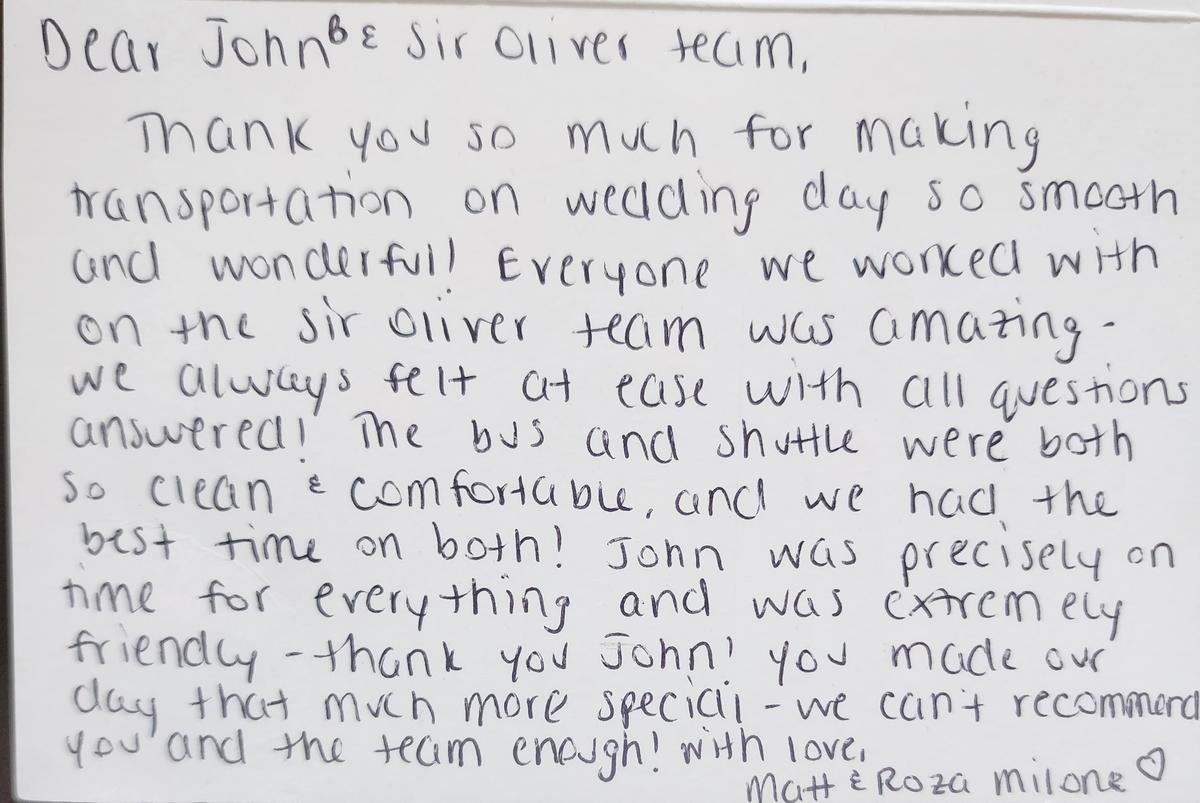 Dear John B & Sir Oliver team,
Thank you so much for making
transportation on wedding day so smooth
and wonderful! Everyone we worked with
on the Sir Oliver team was amazing -
we always felt at ease with all questions
answered! The bus and shuttle were both
so clean & comfortable, and we had the
best time on both! John was precisely on
time for everything and was extremely
friendly - thank you John! you made our
day that much more special - we can't recommend
you and the team enough! with love,
Matt & Roza Milone ♡